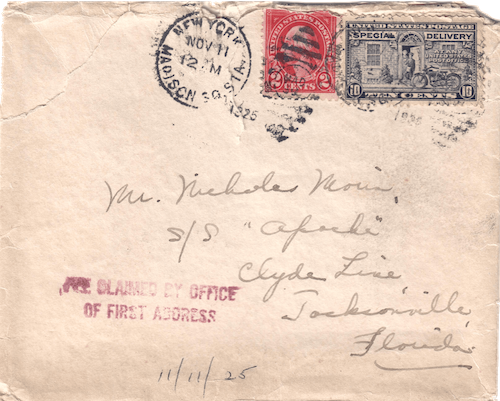 NEW YORK, N.Y.
NOV 11
12 M
1925
MADISON SQ. STA.
UNITED STATES POSTAGE
2 CENTS 2
UNITED STATES POSTAGE
SPECIAL DELIVERY
10 TEN CENTS 10
Mr. Nicholas Morin
S/S "Apache"
Clyde Line
Jacksonville
Florida
CLAIMED BY OFFICE
OF FIRST ADDRESS
11/11/25